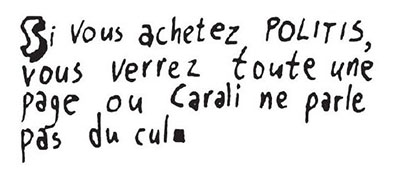 Si vous achetez POLITIS,
vous verrez toute une
page ou Carali ne parle
pas du cul.